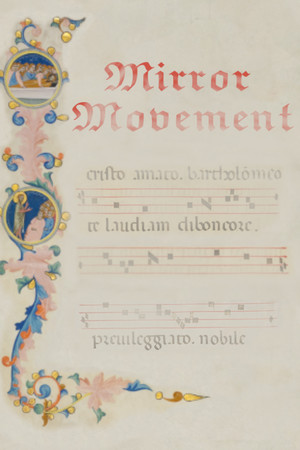 Mirror
Movement
cristo amato. bartholomeo
te laudiam diboncore.
preuileggiato. nobile